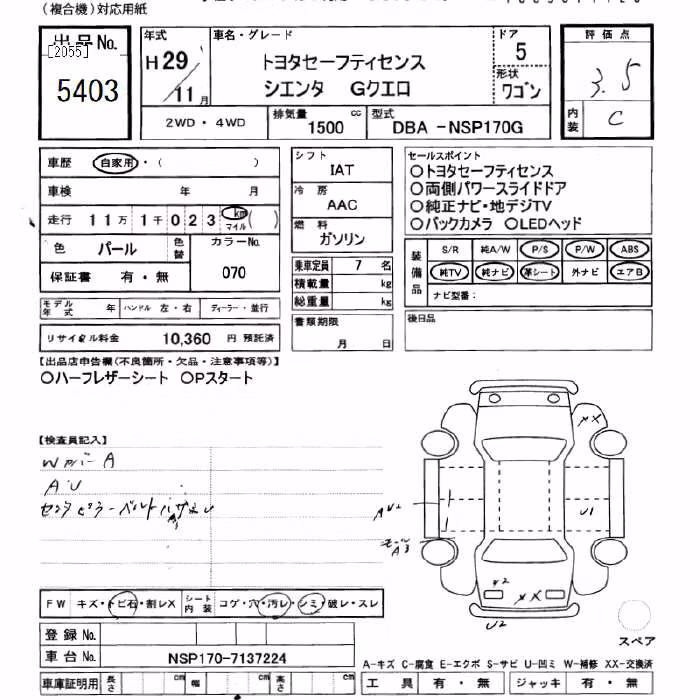 (複合機)対応用紙
出品No.
[2055]
5403
年式
H29
11月
車名・グレード
トヨタセーフティセンス
シエンタ Gクエロ
ドア
5
形状
ワゴン
評価点
3.5
内装
C
2WD・4WD
排気量
1500 cc
型式
DBA -NSP170G
車歴 自家用・( )
車検 年 月
走行 11万1千023 km マイル ( )
色 パール 色替 カラーNo. 070
保証書 有・無
モデル年式 年 ハンドル 左・右 ディーラー・並行
リサイクル料金 10,360 円 預託済
シフト
IAT
冷房
AAC
燃料
ガソリン
乗車定員 7 名
積載量 kg
総重量 kg
書類期限
月 日
セールスポイント
○トヨタセーフティセンス
○両側パワースライドドア
○純正ナビ・地デジTV
○バックカメラ ○LEDヘッド
装備品
S/R 純A/W P/S P/W ABS
純TV 純ナビ 革シート 外ナビ エアB
ナビ型番:
後日品
【出品店申告欄(不良箇所・欠品・注意事項等)】
○ハーフレザーシート ○Pスタート
【検査員記入】
Wバイパー A
A U
センタピラーベルト
XX
A U2
U1
モール
A3
U2
XX
U2
FW キズ・トビ石・割レX シート内装 コゲ・穴・汚レ・シミ・破レ・スレ
登録No.
車台No. NSP170-7137224
車庫証明用 長さ cm 幅 cm 高さ cm
スペア
A-キズ C-腐食 E-エクボ S-サビ U-凹ミ W-補修 XX-交換済
工具 有・無 ジャッキ 有・無